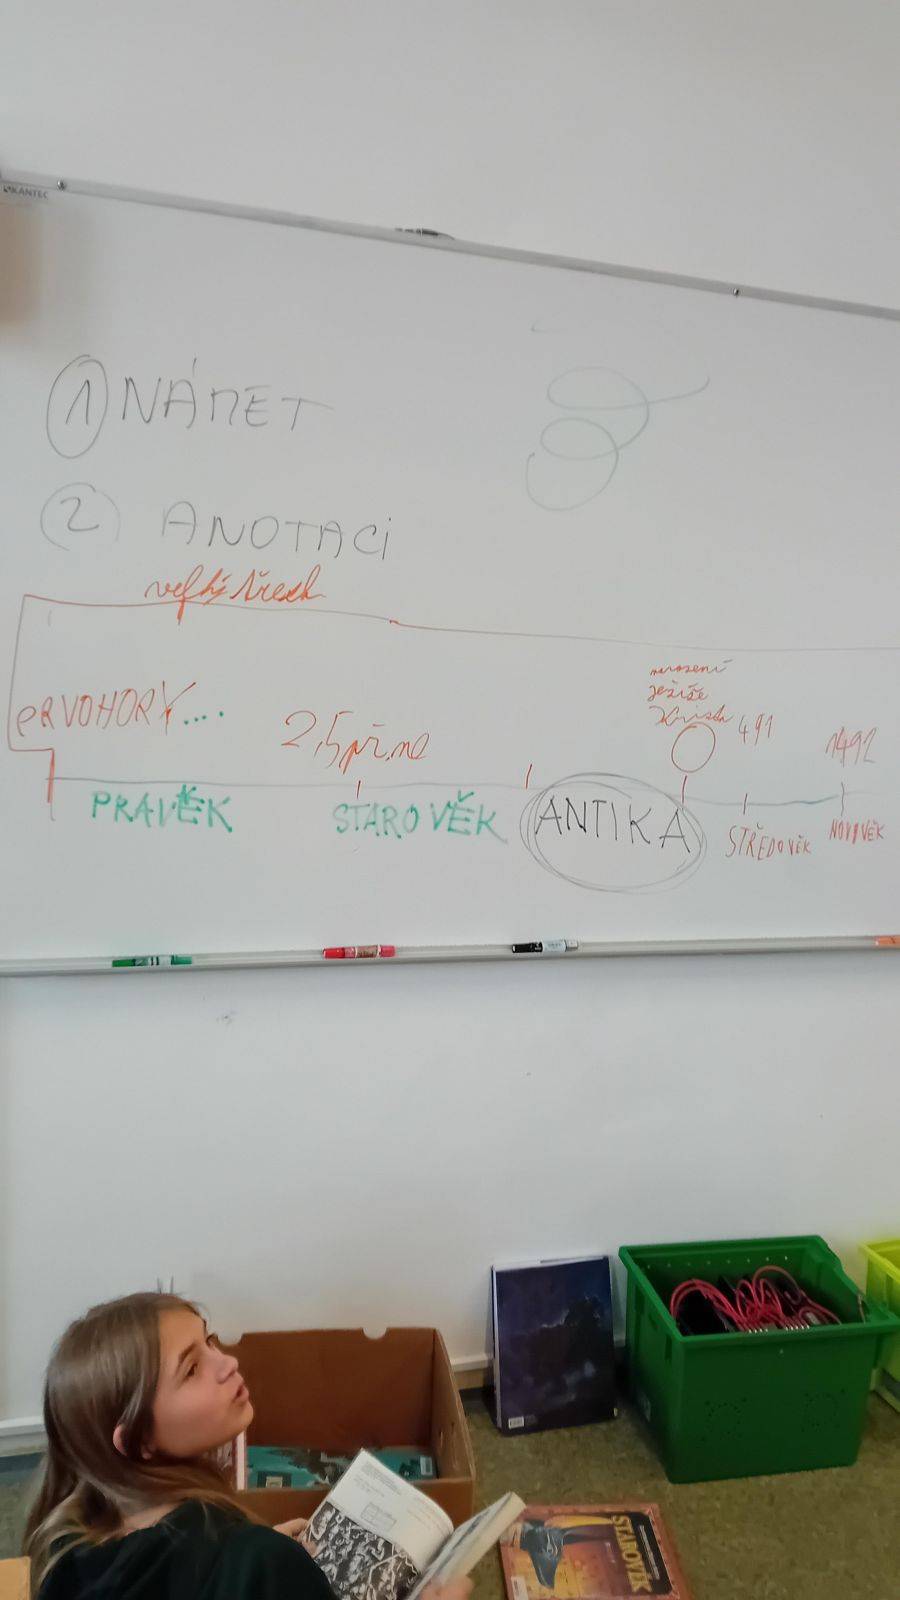 KANTEC
1 NÁMĚT
2 ANOTACI
velký třesk
PRVOHORY....
2,5 př.nl
narození
Ježíše
Krista
491
1492
PRAVĚK
STAROVĚK
ANTIKA
STŘEDOVĚK
NOVOVĚK
STAROVĚK